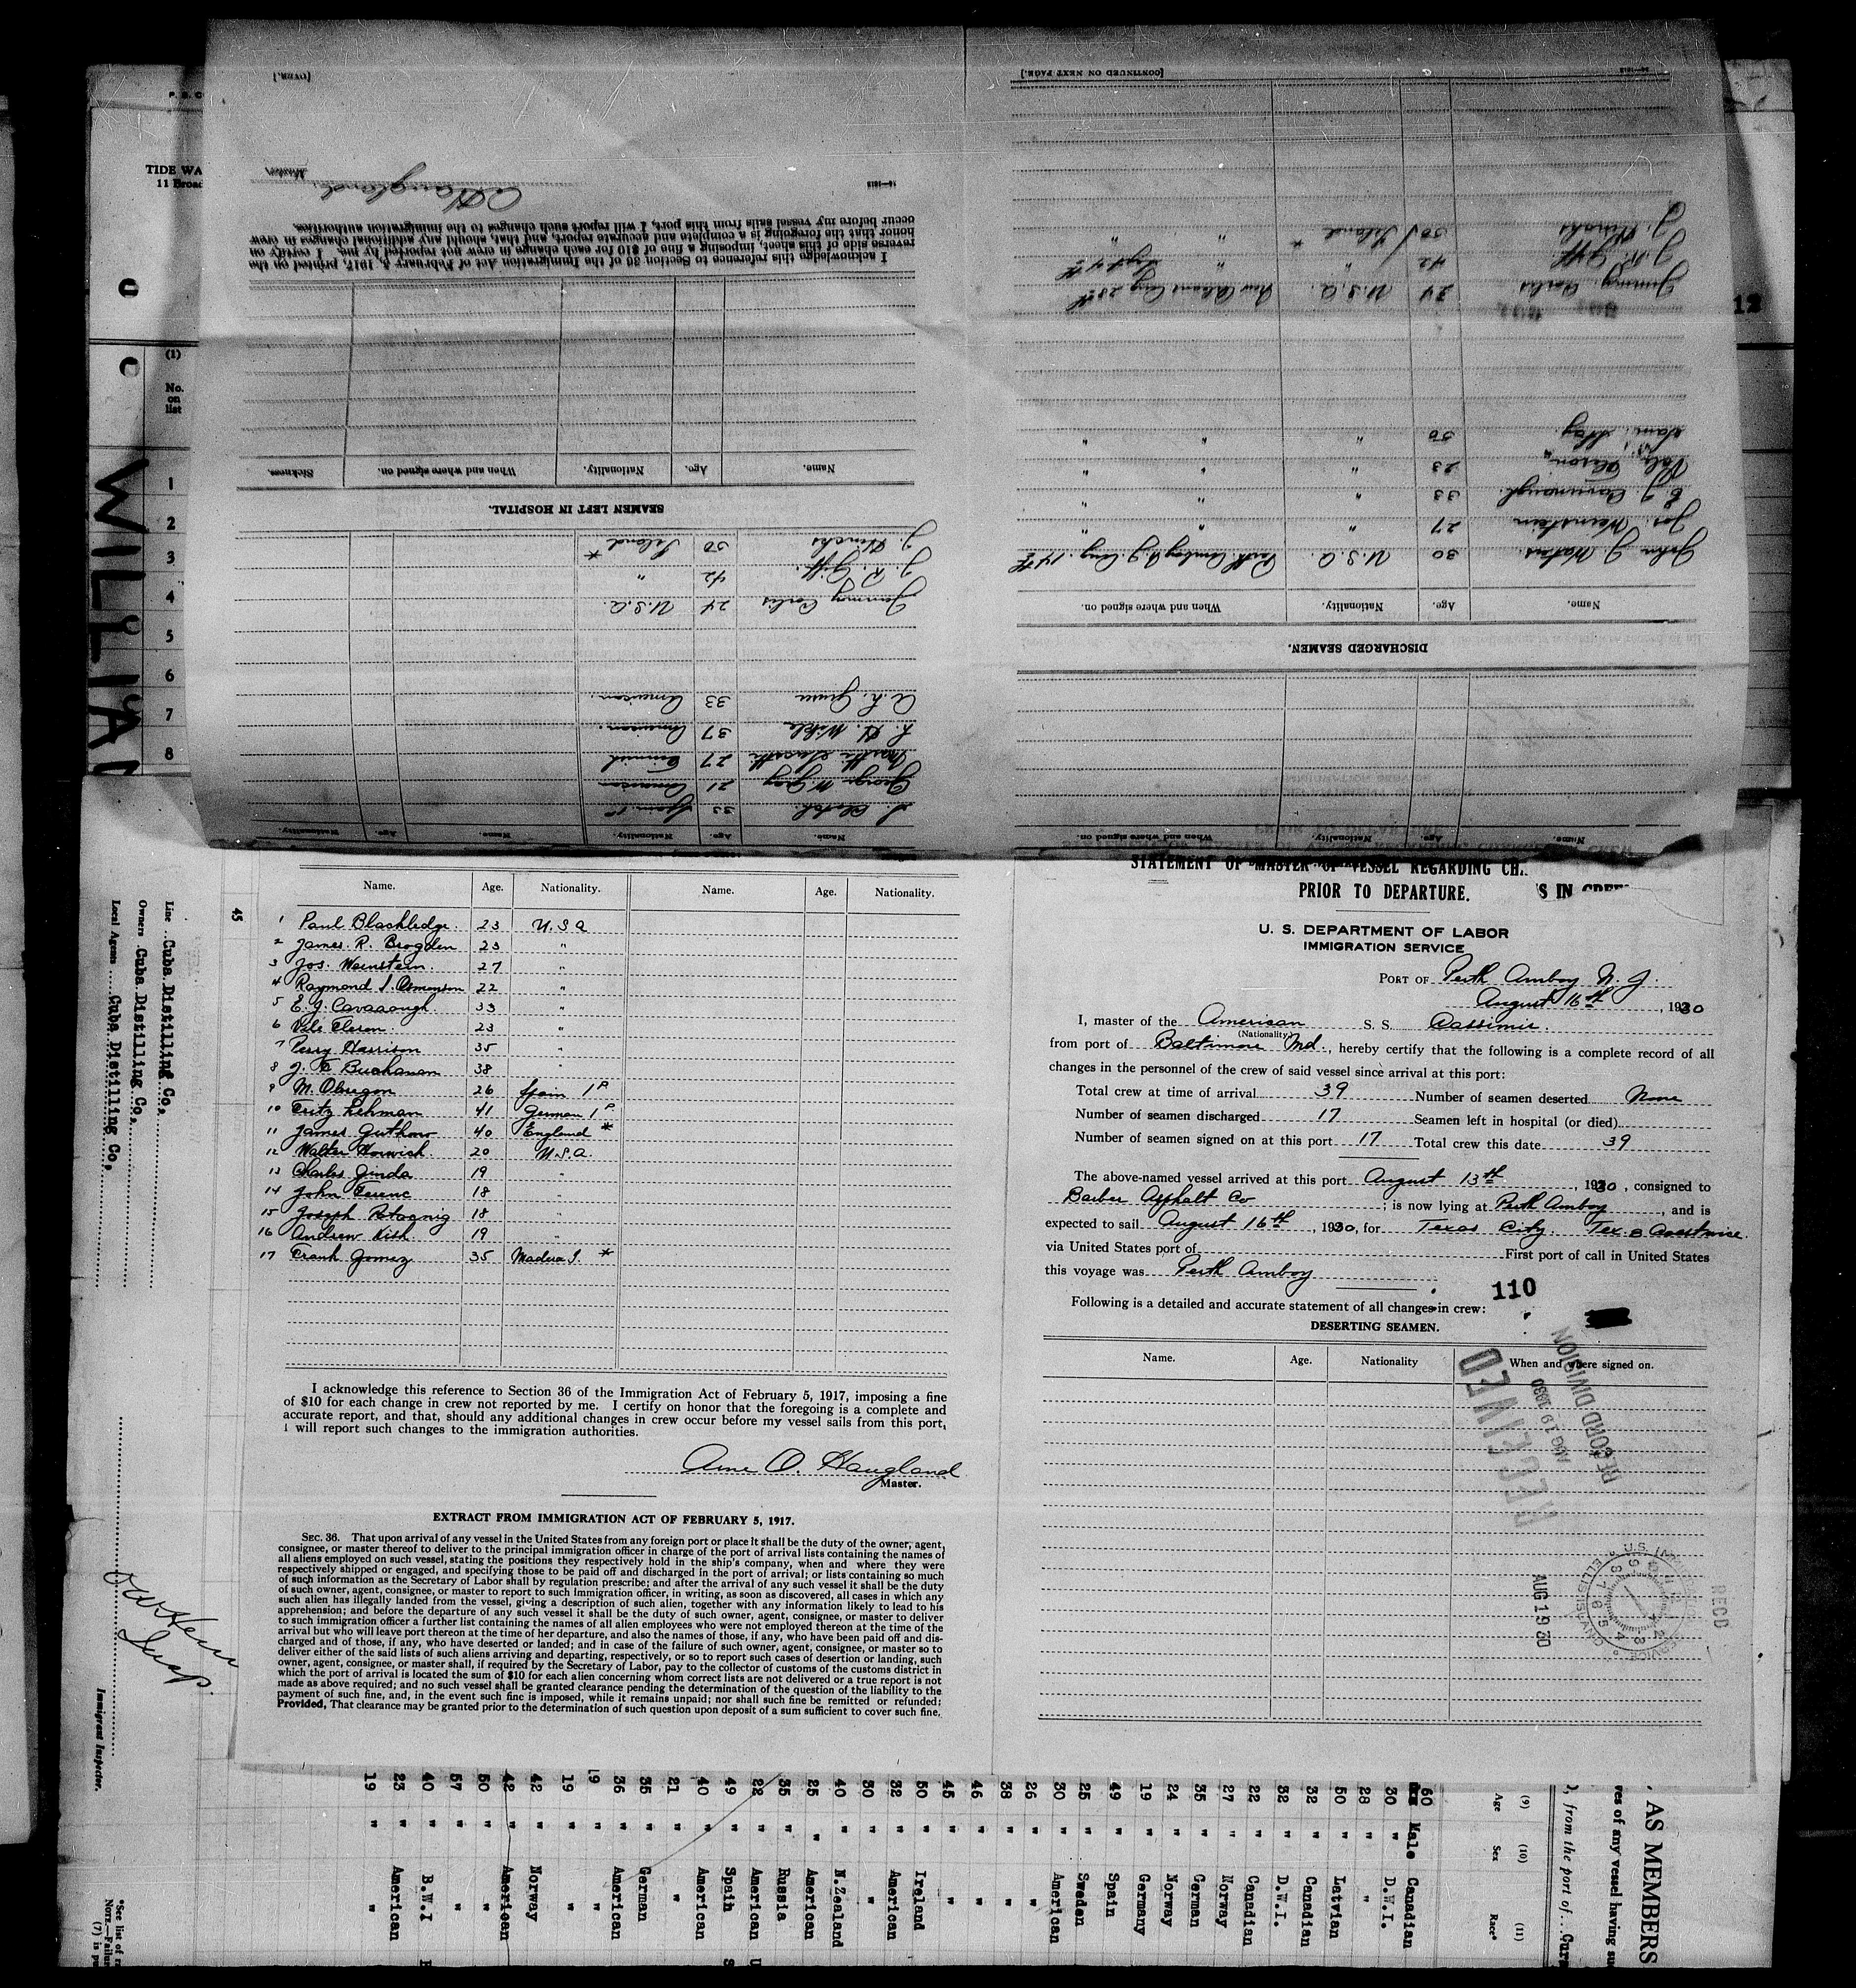 [OVER.]
[CONTINUED ON NEXT PAGE.]
TIDE WA
11 Broad
Master.
I acknowledge this reference to Section 36 of the Immigration Act of February 5, 1917, printed on the
reverse side of this sheet, imposing a fine of $10 for each change in crew not reported by me. I certify on
honor that the foregoing is a complete and accurate report, and that, should any additional changes in crew
occur before my vessel sails from this port, I will report such changes to the immigration authorities.
12
(1)
No.
on
list
1
2
3
4
5
6
7
8
Name. Age. Nationality. When and where signed on. Sickness.
SEAMEN LEFT IN HOSPITAL.
J. Hinchs 50 Ireland *
J. R. Giff. 42 "
Jimmy Carlis 24 U.S.A.
A. L. 33 American
L. H. 37 American.
27
George W. Gray 21 American
33 Spain
Name. Age. Nationality. Name. Age. Nationality.
J. Hinchs 50 Ireland * " "
J. R. Giff. 42 " " Sept 4th
Jimmy Carlis 24 U.S.A. New Orleans Aug 28th
50 " " "
Vale Eleson 23 " " "
E. J. Cavanaugh 33 " " "
Jos. Weinstein 27 " " "
John J. 30 U.S.A Perth Amboy N.J. Aug. 14th
Name. Age. Nationality. When and where signed on.
DISCHARGED SEAMEN.
Name. Age. Nationality. When and where signed on.
45
Line Cuba Distilling Co,
Owners Cuba Distilling Co,
Local Agents Cuba Distilling Co,
Immigrant Inspector.
Name. Age. Nationality. Name. Age. Nationality.
1 Paul Blackledge. 23 U.S.A
2 James R. Brogden 23 "
3 Jos. Weinstein. 27 "
4 Raymond S. Osmenson 22 "
5 E. J. Cavanaugh 33 "
6 Vale Eleson 23 "
7 Perry Harrison 35 "
8 J. Buchanan 38 "
9 M. Obregon 26 Spain 1P
10 Fritz Lehman 41 German 1P
11 James Guthow 40 England *
12 Walter Horwich 20 U.S.A.
13 Charles Jinda 19 "
14 John Ferenc 18 "
15 Joseph 18 "
16 Andrew Kish 19 "
17 Frank Gomez 35 Madera I. *
I acknowledge this reference to Section 36 of the Immigration Act of February 5, 1917, imposing a fine
of $10 for each change in crew not reported by me. I certify on honor that the foregoing is a complete and
accurate report, and that, should any additional changes in crew occur before my vessel sails from this port,
I will report such changes to the immigration authorities.
Arne O. Haugland
Master.
EXTRACT FROM IMMIGRATION ACT OF FEBRUARY 5, 1917.
SEC. 36. That upon arrival of any vessel in the United States from any foreign port or place it shall be the duty of the owner, agent,
consignee, or master thereof to deliver to the principal immigration officer in charge of the port of arrival lists containing the names of
all aliens employed on such vessel, stating the positions they respectively hold in the ship's company, when and where they were
respectively shipped or engaged, and specifying those to be paid off and discharged in the port of arrival; or lists containing so much
of such information as the Secretary of Labor shall by regulation prescribe; and after the arrival of any such vessel it shall be the duty
of such owner, agent, consignee, or master to report to such immigration officer, in writing, as soon as discovered, all cases in which any
such alien has illegally landed from the vessel, giving a description of such alien, together with any information likely to lead to his
apprehension; and before the departure of any such vessel it shall be the duty of such owner, agent, consignee, or master to deliver
to such immigration officer a further list containing the names of all alien employees who were not employed thereon at the time of the
arrival but who will leave port thereon at the time of her departure, and also the names of those, if any, who have been paid off and dis-
charged and of those, if any, who have deserted or landed; and in case of the failure of such owner, agent, consignee, or master so to
deliver either of the said lists of such aliens arriving and departing, respectively, or so to report such cases of desertion or landing, such
owner, agent, consignee, or master shall, if required by the Secretary of Labor, pay to the collector of customs of the customs district in
which the port of arrival is located the sum of $10 for each alien concerning whom correct lists are not delivered or a true report is not
made as above required; and no such vessel shall be granted clearance pending the determination of the question of the liability to the
payment of such fine, and, in the event such fine is imposed, while it remains unpaid; nor shall such fine be remitted or refunded:
Provided, That clearance may be granted prior to the determination of such question upon deposit of a sum sufficient to cover such fine.
STATEMENT OF MASTER OF VESSEL REGARDING CH S IN CREW
PRIOR TO DEPARTURE.
U. S. DEPARTMENT OF LABOR
IMMIGRATION SERVICE
PORT OF Perth Amboy N. J.
August 16th, 1930
I, master of the American S. S. Cassimir.
(Nationality)
from port of Baltimore Md., hereby certify that the following is a complete record of all
changes in the personnel of the crew of said vessel since arrival at this port:
Total crew at time of arrival 39 Number of seamen deserted None
Number of seamen discharged 17 Seamen left in hospital (or died)
Number of seamen signed on at this port 17 Total crew this date 39
The above-named vessel arrived at this port August 13th, 1930, consigned to
Barber Asphalt Co; is now lying at Perth Amboy, and is
expected to sail August 16th, 1930, for Texas City. Tex. Coastwise.
via United States port of First port of call in United States
this voyage was Perth Amboy
110
Following is a detailed and accurate statement of all changes in crew:
DESERTING SEAMEN.
Name. Age. Nationality When and where signed on.
RECEIVED
AUG 19 1930
RECORD DIVISION
AUG 19 30
RECD
19 " "
23 " American
40 " B.W.I
57 " "
50 " "
42 " American
42 " Norway
19 " "
19 " "
36 " American
35 " German
21 " "
40 " American
49 " Spain
22 " American
35 " Russia
25 " American
40 " N.Zealand
30 " "
32 " American
50 " Ireland
45 " "
46 " "
38 " "
26 " "
30 " American
25 " Sweden
49 " Spain
19 " Germany
24 " Norway
35 " German
27 " Norway
22 " Canadian
32 " D.W.I.
32 " Canadian
50 " Latvian
28 " "
30 " D.W.I.
60 Male Canadian
(9) Age
(10) Sex
(11) Race*
, from the port of
ves of any vessel having su
AS MEMBERS
*See list of r
NOTE.—Failur
(7) is pu